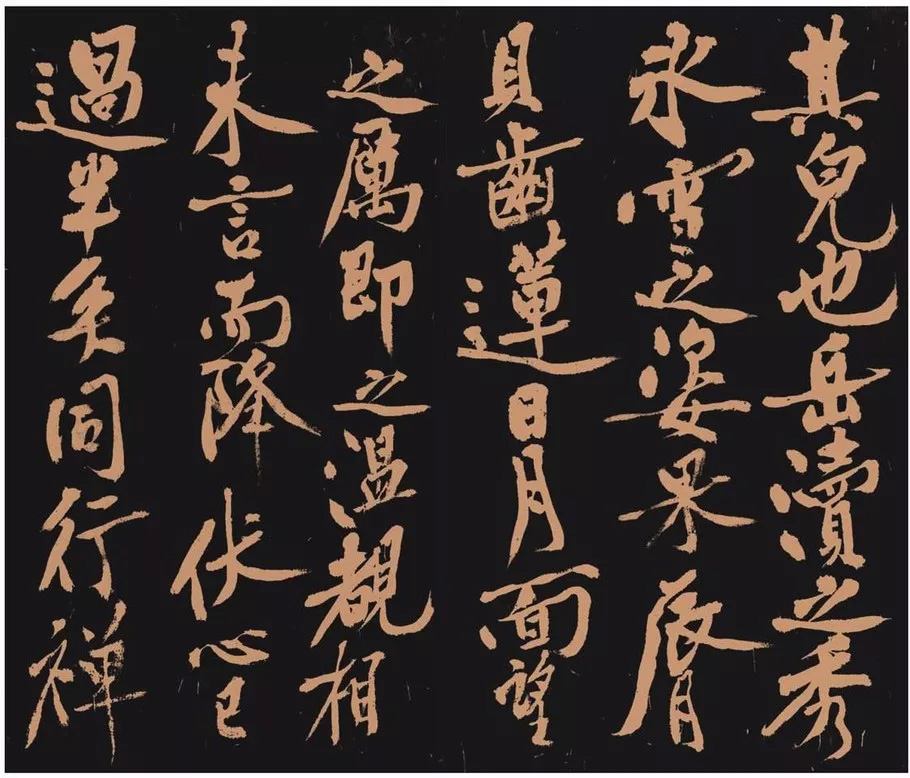 其皃也岳瀆之秀
氷雪之姿果脣
貝齒蓮日月面望
之厲即之温覩相
未言而降伏心已
過半矣同行禅